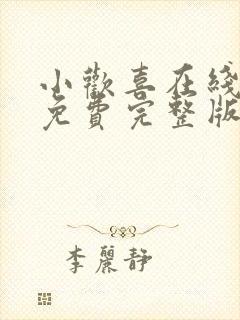 小歡喜在綫
免費完整版
李麗靜